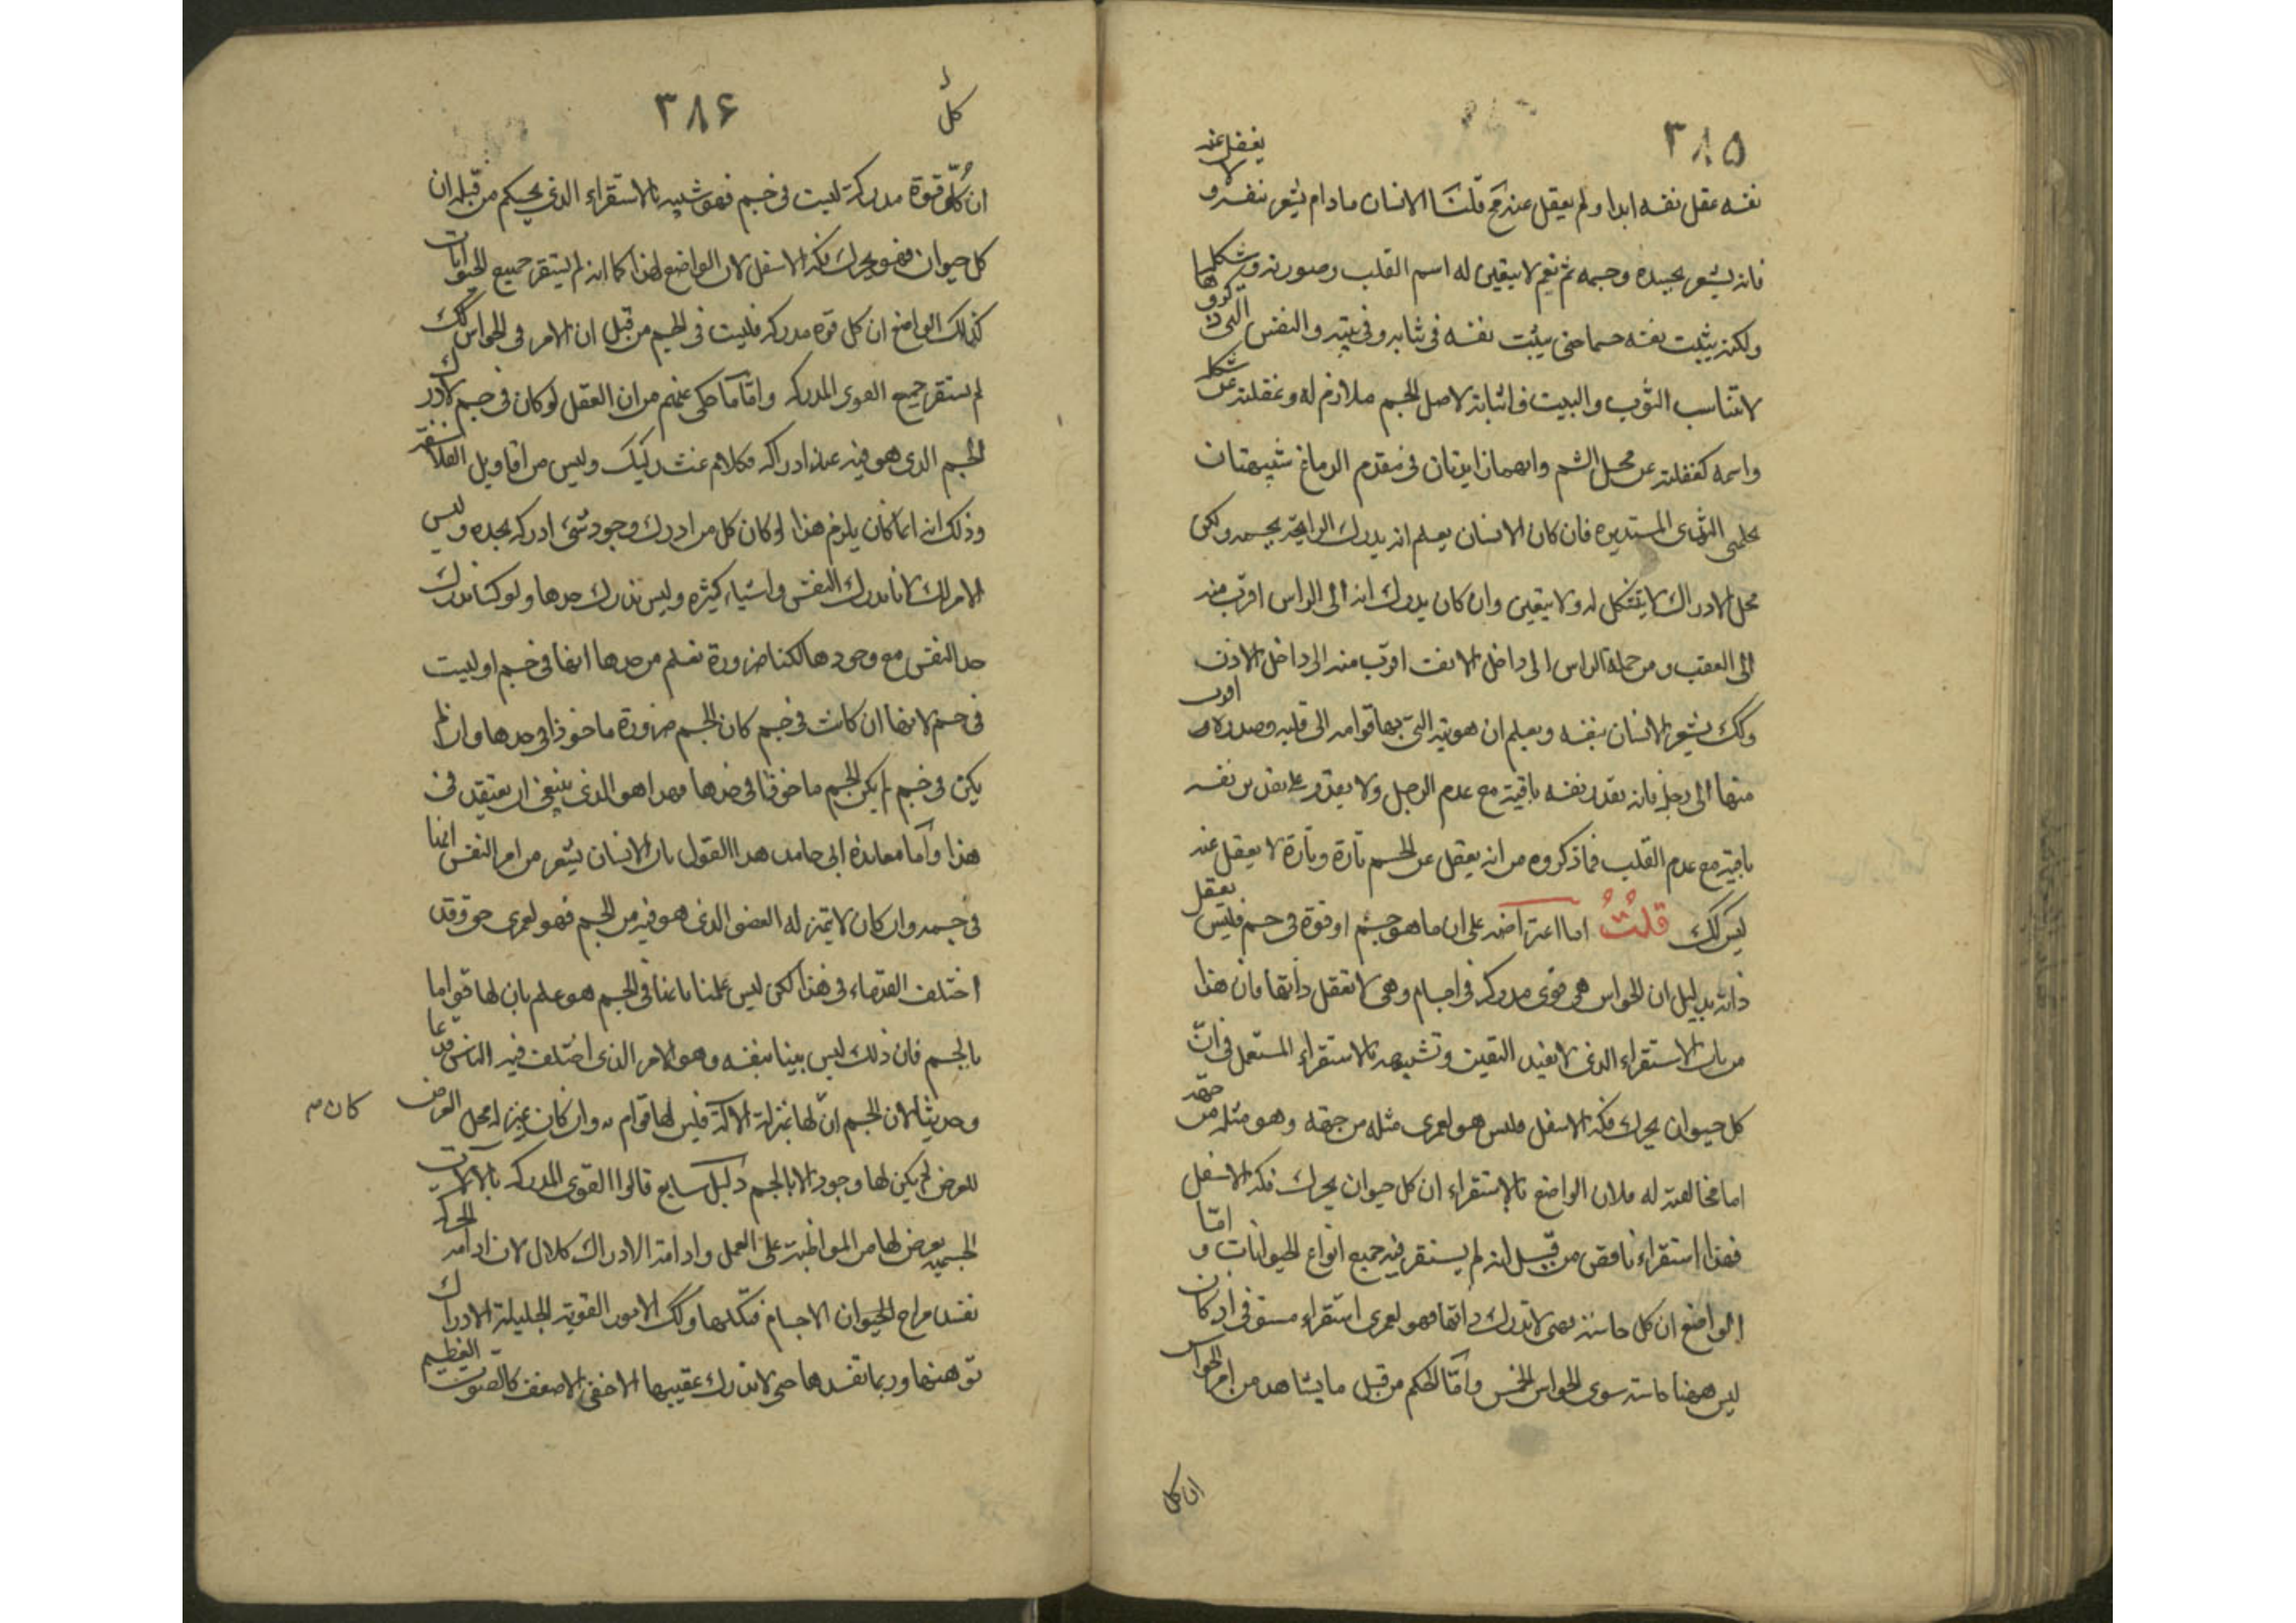 ٣٨٥
يغفل عنه
نفسه عقل نفسه ابدا ولم يعقل عنه مح قلنا الانسان مادام يشعر بنفسه و
فانه يشعر بجسده وجسمه ثم نعم لا يتعين له اسم القلب وصورته وشكلها
ولكنه يثبت نفسه جسما حتى يثبت نفسه فى ثيابه وفى بيته والنفس التى ذكروها
لا تناسب الثوب والبيت فاثباته لاصل الجسم ملازم له وغفلته عن شكله
واسمه كغفلته عن محل الشم وانهما زايدتان فى مقدم الدماغ شبيهتان
بحلمتى الثدى المستديره فان كان الانسان يعلم انه يدرك الرايحة بجسمه ولكن
محل الادراك لا يتشكل له ولا يتعين وان كان يدرك انه الى الراس اقرب منه
الى العقب ومن جملة الراس الى داخل الانف اقرب منه الى داخل الاذن
وكك يشعر الانسان بنفسه ويعلم ان هويته التى بها قوامه الى قلبه وصدره اقرب
منها الى رجله فانه يقدر نفسه باقية مع عدم الرجل ولا يقدر على تقدير نفسه
باقية مع عدم القلب فما ذكروه من انه يعقل عن الجسم تارة وتارة لا يعقل عنه
ليس كك قلتُ اما اعتراضه على ان ما هو جسم او قوة فى جسم فليس يعقل
ذاته بدليل ان الحواس هى قوى مدركه فى اجسام وهى لا تعقل ذاتها فان هذا
من باب الاستقراء الذى لا يفيد اليقين وتشبيهه بالاستقراء المستعمل فى انّ
كل حيوان يحرك فكه الاسفل فليس هو لعمرى مثله من جهة وهو مثله من جهة
اما مخالفته له فلان الواضع بالاستقراء ان كل حيوان يحرك فكه الاسفل
فهذا استقراء ناقص من قبل انه لم يستقر فيه جميع انواع الحيوانات و امّا
الواضع ان كل حاسة فهى لا تدرك ذاتها فهو لعمرى استقراء مستوفى اذ كان
ليس ههنا حاسة سوى الحواس الخمس وامّا الحكم من قبل ما يشاهد من امر الحواس
ان كل
٣٨۶
كل
ان كل قوة مدركة ليست فى جسم فهو شبيه بالاستقراء الذى يحكم من قبله ان
كل حيوان فهو يحرك فكه الاسفل لان الواضع لهذا كما انه لم يستقر جميع الحيوانات
كذلك الواضع ان كل قوة مدركه فليست فى الجسم من قبل ان الامر فى الحواس كك
لم يستقر جميع القوى المدركه واما ما حكى عنهم من ان العقل لو كان فى جسم لادرك
الجسم الذى هو فيه عند ادراكه فكلام غث ركيك وليس من اقاويل الفلاسفة
وذلك انه انما كان يلزم هذا لو كان كل من ادرك وجود شئ ادركه بحده وليس
الامر كك لانا ندرك النفس واشياء كثيره وليس ندرك حدها ولو كنا ندرك
حد النفس مع وجودها لكنا ضرورة نعلم من حدها انها فى جسم او ليست
فى جسم لانها ان كانت فى جسم كان الجسم ضرورة ماخوذا فى حدها وان لم
يكن فى جسم لم يكن الجسم ماخوذا فى حدها فهذا هو الذى ينبغى ان يعتقد فى
هذا وأما معاندة ابى حامد هذا القول بان الانسان يشعر من امر النفس انها
فى جسمه وان كان لا يتميز له العضو الذى هو فيه من الجسم فهو لعمرى حق وقد
اختلف القدماء فى هذا لكن ليس علمنا بانها فى الجسم هو علم بان لها قواما
بالجسم فان ذلك ليس بينا بنفسه وهو الامر الذى اختلف فيه الناس قديما
وحديثا لان الجسم ان لها بمنزلة الالة فليس لها قوام به وان كان بمنزلة محل العرض
كان م
للعرض لم يكن لها وجود الا بالجسم دليل سابع قالوا القوى المدركه بالالات
الجسميه يعرض لها من المواظبة على العمل وادامة الادراك كلال لان ادامة الحركه
تفسد مزاج الاجسام فتكلها وكك الامور القوية الجليلة الادراك
توهنها وربما تفسدها حتى لا تدرك عقيبها الاخفى الاضعف كالصوت العظيم